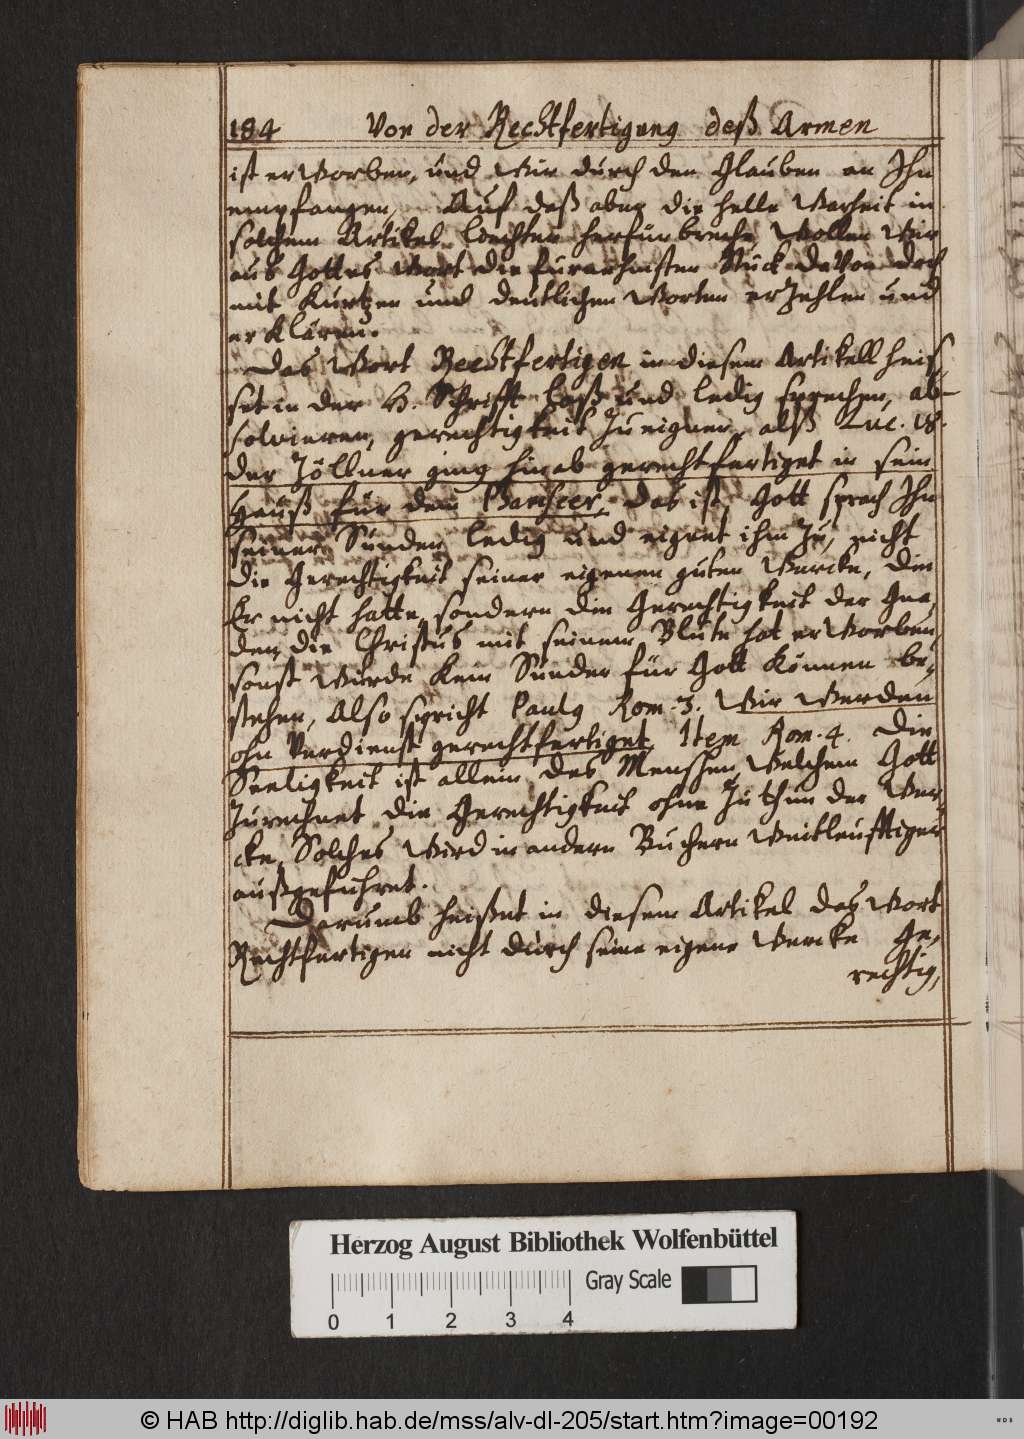 184 Von der Rechtfertigung deß Armen
ist erworben, und wir durch den Glauben an Ihn
empfangen, Auf daß aber die helle Warheit in
solchem Artikel herfur breche, wollen wir
aus Gottes Wort die furnehmsten Stuck davon doch
mit Kurtzen und deutlichen Worten erzehlen und
erklären.
Das Wort Rechtfertigen in diesem Artikell heis,
set in der H. Schrifft Loß und ledig sprechen, ab-
solvieren, gerechtigkeit zueignen, alß Luc. 18.
der Zöllner ging hinab gerechtfertiget in sein
Hauß für dem Phariseer, das ist, Gott sprach Ihn
seiner Sünden ledig und eignet ihm zu, nicht
die Gerechtigkeit seiner eigenen guten Wercke, die
Er nicht hatte, sondern die Gerechtigkeit der Gna,
den, die Christus mit seinem Blute hat erworben,
sonst würde kein Sünder für Gott können be,
stehen, Also spricht Paulus Rom. 3. Wir werden
ohn Verdienst gerechtfertiget, Item Rom. 4. Die
Seeligkeit ist allein des Menschen, welchem Gott
zurechnet die Gerechtigkeit ohne Zuthun der Wer,
cke, Solches wird in andern Buchern weitleufftiger
außgefuhret.
Darumb heisset in diesem Artikel das Wort
Rechtfertigen nicht durch seine eigene Wercke Ge,
rechtig,
Herzog August Bibliothek Wolfenbüttel
Gray Scale
0 1 2 3 4
© HAB http://diglib.hab.de/mss/alv-dl-205/start.htm?image=00192